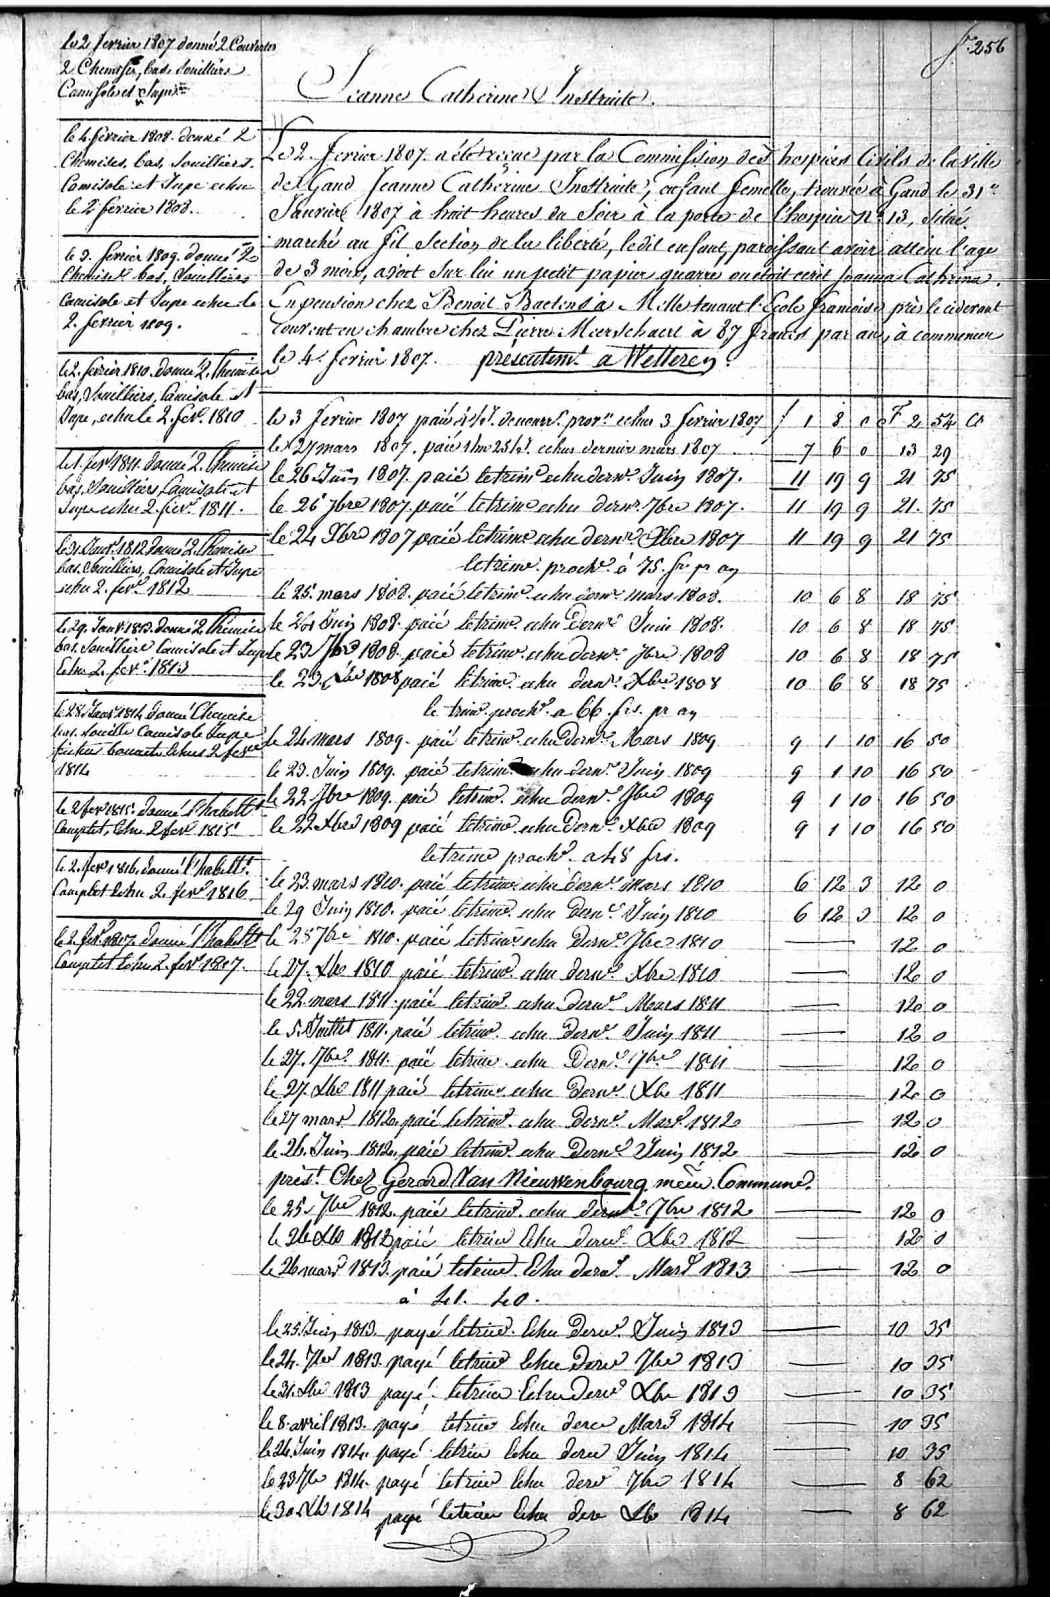 f.° 256
le 2 fevrier 1807 donné 2 Couvertes
2 Chemises, bas, Souilliers
Camisole et Jupe
le 4. fevrier 1808. donné 2
Chemises, bas, Souilliers
Camisole et Jupe echu
le 2 fevrier 1808.
le 3. fevrier 1809. donné 2
Chemises bas, Souilliers
Camisole et Jupe echu le
2. fevrier 1809.
le 2. fevrier 1810. donné 2. Chemises
bas, Souilliers, Camisole et
Jupe, echu le 2. fevr. 1810
le 1. fevr 1811. donné 2. Chemises
bas, Souilliers Camisole et
Jupe echu 2. fevr. 1811.
le 31 Janvr. 1812 donné 2. Chemises
bas, Souilliers, Camisole et Jupe
echu 2. fevr. 1812
le 29. Janv. 1813. donné 2. Chemises
bas, Souilliers Camisole et Jupe
Echu 2. fevr. 1813
le 28. Janv 1814 donné Chemise
bas. Souille Camisole Jupe
fichu Echus 2 fevr
1814
le 2 fevr 1815. donné l'habillt
Complet, Echu 2 fevr 1815
le 2. fevr 1816. donné l'habillt.
Complet Echu 2. fevr 1816
le 2. fevr. 1817. donné l'habillt
Complet Echu 2. fevr. 1817.
Jeanne Catherine Instruite.
Le 2. fevrier 1807. a été reçue par la Commission des hospices Civils de la Ville
de Gand Jeanne Catherine Instruite, enfant femelle, trouvée à Gand le 31
Janvier 1807 à huit heures du Soir à la porte de l'hospice N° 13, situé
marché au fil Section de la liberté, ledit enfant, paroissant avoir attein l'age
de 3 mois, avoit sur lui un petit papier quarré ou etoit ecrit Joanna Cathrina.
En pension chez Benoit Baetens a Melle tenant l'Ecole francoise près le cidevant
couvent en chambre chez Pierre Meerschaert à 87 francs par an, à commencer
le 4. fevrier 1807. présentemt. a Wetteren.
le 3 fevrier 1807 paié echu 3 fevrier 1807 f 1 8 0 F 2 54 Cs
le 27 mars 1807. paié echu dernier mars 1807 7 6 0 13 29
le 26 Juin 1807. paié le trime echu dernr. Juin 1807. 11 19 9 21 75
le 26 7bre 1807. paié le trime echu dernr. 7bre 1807. 11 19 9 21. 75
le 24 Xbre 1807 paié le trime echu dernr. Xbre 1807 11 19 9 21 75
le trime. prochn. à 75. fr pr an
le 25. mars 1808. paié le trime. echu dernr. mars 1808. 10 6 8 18 75
le 24 Juin 1808. paié le trime. echu Dernr. Juin 1808. 10 6 8 18 75
le 23 7bre 1808. paié le trime. echu dernr. 7bre 1808 10 6 8 18 75
le 23. Xbre 1808 paié le trime. echu dernr. Xbre 1808 10 6 8 18 75
le trim. prochn. a 66. frs. pr an
le 24 mars 1809. paié le trime. echu dernr. Mars 1809 9 1 10 16 50
le 23. Juin 1809. paié le trime. echu dernr. Juin 1809 9 1 10 16 50
le 22 7bre 1809. paié le trime. echu dernr. 7bre 1809 9 1 10 16 50
le 22 Xbre 1809 paié le trime. echu Dernr. Xbre 1809 9 1 10 16 50
le trime prochn. a 48 frs.
le 23. mars 1810. paié le trime echu Dernr. Mars 1810 6 12 3 12 0
le 29 Juin 1810. paié le trime. echu Dernr. Juin 1810 6 12 3 12 0
le 28 7bre 1810. paié le trime echu Dernr. 7bre 1810 12 0
le 27. Xbre 1810 paié le trime. echu dernr. Xbre 1810 12 0
le 22 mars 1811. paié le trime. echu dernr. Mars 1811 12 0
le 5. Juillet 1811. paié le trime. echu Dernr. Juin 1811 12 0
le 27. 7bre. 1811. paié le trime. echu Dernr. 7bre 1811 12 0
le 27. Xbre 1811 paié le trime. echu Dernr. Xbre 1811 12 0
le 27 mars 1812. paié le trime. echu Dernr. Mars 1812 12 0
le 26. Juin 1812. paié le trime. echu Dernr. Juin 1812 12 0
prést. Chez Gerard Van Nieuwenbourg même Commune.
le 25. 7bre 1812. paié le trime. echu dernr. 7bre 1812 12 0
le 26 Xbre 1812 paié le trime Echu dernr. Xbre 1812 12 0
le 26 mars 1813. paié le trime. Echu dernr. Mars 1813 12 0
à 41. 40.
le 25. Juin 1813. payé le trime. Echu Dernr. Juin 1813 10 35
le 24. 7bre 1813. payé le trime Echu Dernr 7bre 1813 10 35
le 31. Xbre 1813 payé le trime Echu dernr Xbre 1813 10 35
le 8. avril 1813. payé le trime Echu dernr Mars 1814 10 35
le 24. Juin 1814. payé le trime Echu dernr Juin 1814 10 35
le 23 7bre 1814. payé le trime Echu dernr 7bre 1814 8 62
le 30 Xbre 1814 payé le trime Echu dernr Xbre 1814 8 62